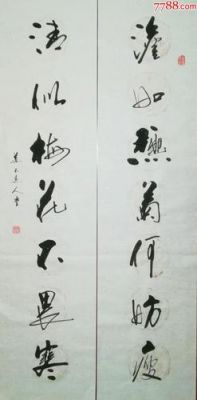 7788.com
澹如蘸菊何妨瘦
清似梅花不畏寒